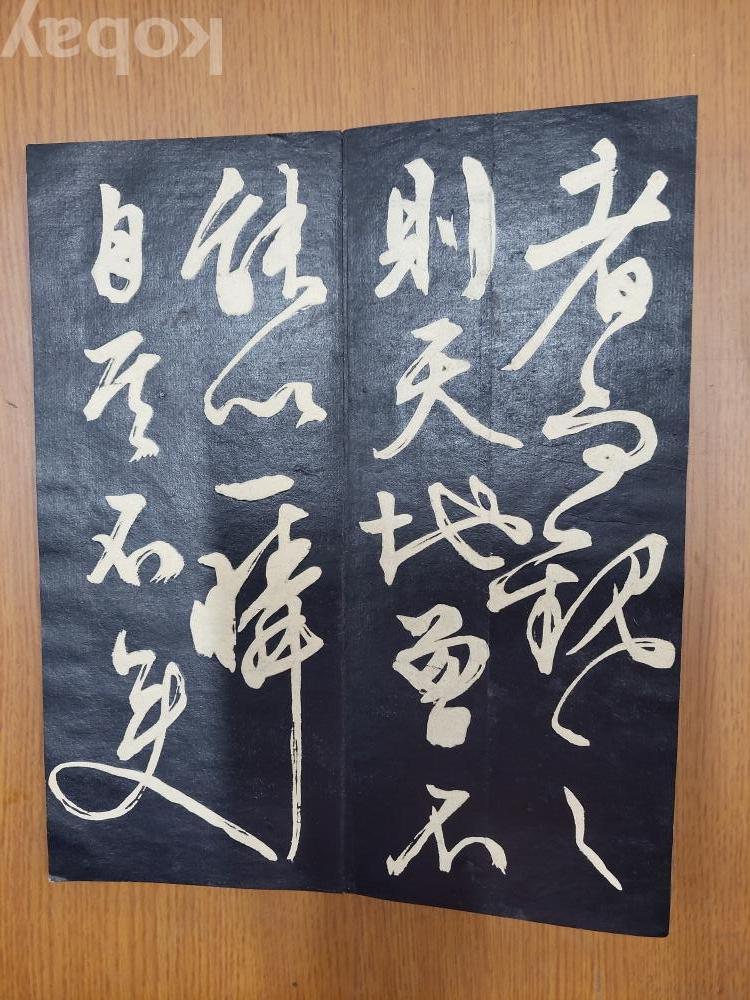 者而觀之
則天地曾不
能以一瞬
自其不變
kobay